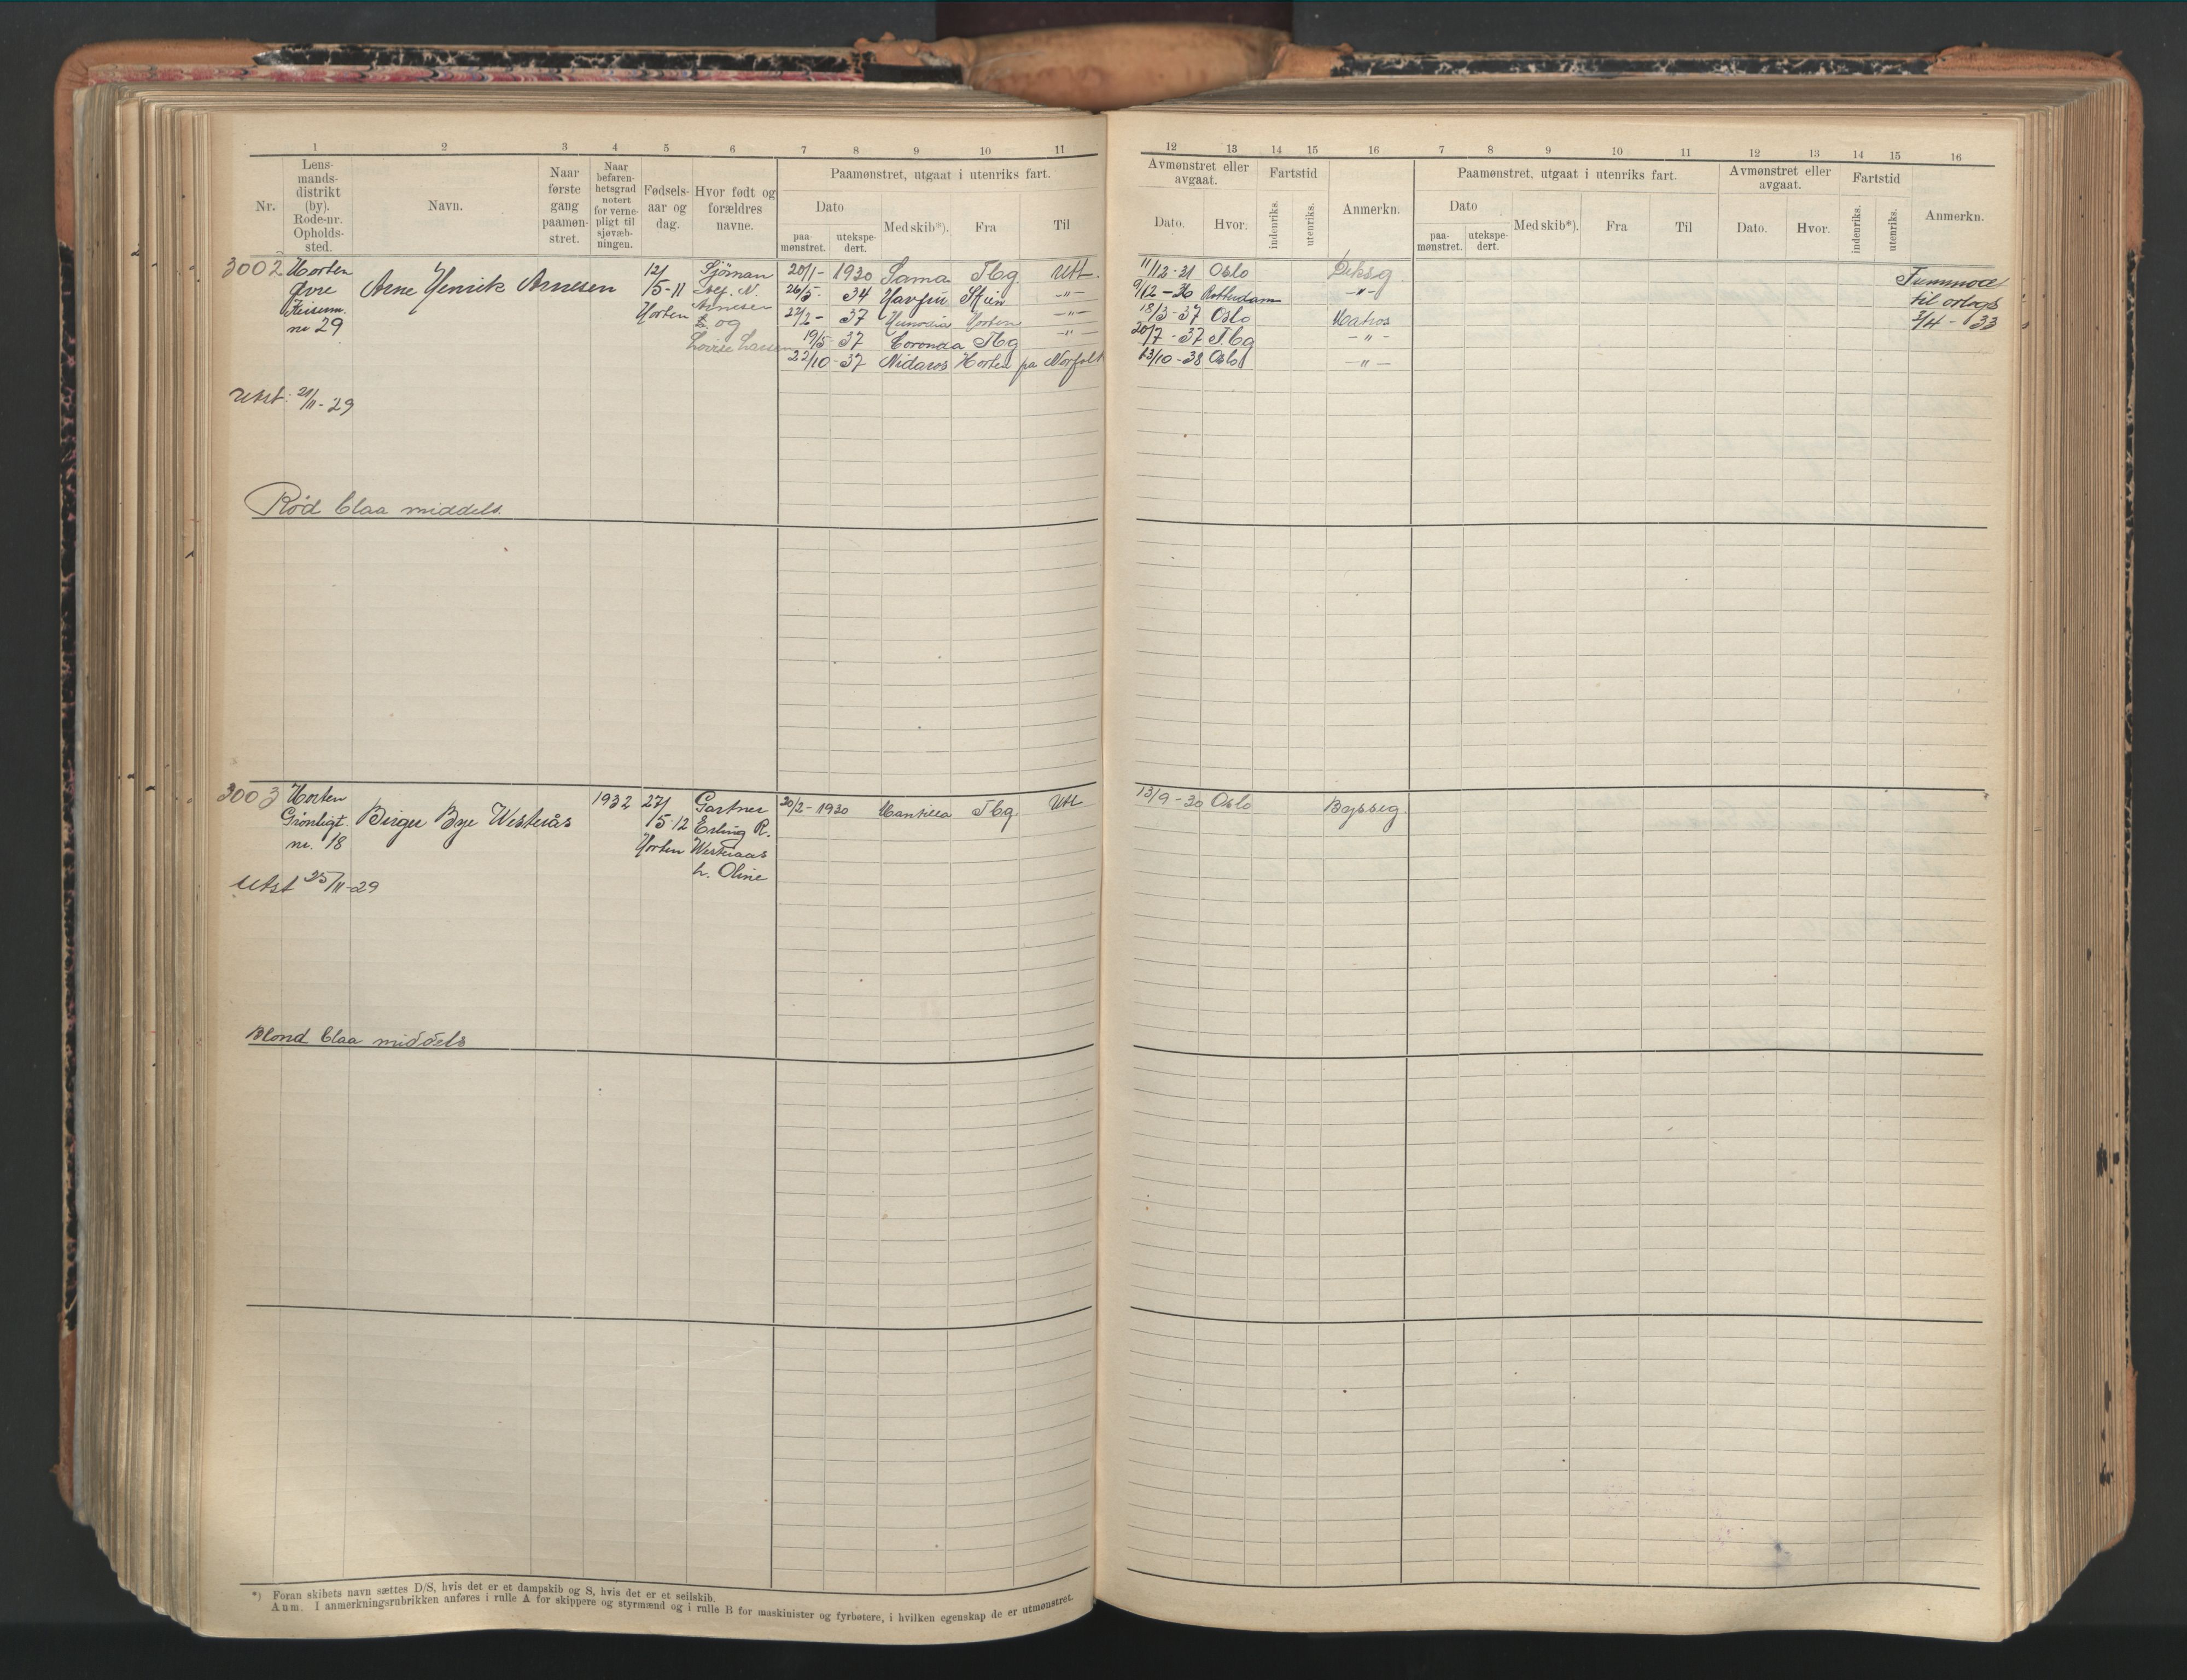 1 2 3 4 5 6 7 8 9 10 11
Nr.
Lens-
mands-
distrikt
(by).
Rode-nr.
Opholds-
sted.
Navn.
Naar
første
gang
paamøn-
stret.
Naar
befaren-
hetsgrad
notert
for verne-
pligt til
sjøvæb-
ningen.
Fødsels-
aar og
dag.
Hvor født og
forældres
navne.
Paamønstret, utgaat i utenriks fart.
Dato
paa-
mønstret.
utekspe-
dert.
Med skib*).
Fra
Til
3002 Horten
Øvre
Keiserm.
nr 29
Arne Henrik Arnesen
12/
/5-11
Horten
Sjöman
Arnesen
og
Lovise Larsen
20/1 - 1930 Sama Tbg Utl.
26/5 - 34 Havfru Skien -"-
27/2 - 37 Horten -"-
19/5 - 37 Coronda Tbg -"-
22/10 - 37 Nidaros Horten pa Norfolk
Utst: 21/11 - 29
Rød blaa middels.
3003 Horten
Grønligt.
nr. 18
Birger Bye Westerås
1932
27/
/5-12
Horten
Gartner
Erling R.
Westeraas
h. Oline
20/2 - 1930 Mantilla Tbg. Utl
Utst 25/11-29
Blond blaa middels
*) Foran skibets navn sættes D/S, hvis det er et dampskib og S, hvis det er et seilskib.
Anm. I anmerkningsrubrikken anføres i rulle A for skippere og styrmænd og i rulle B for maskinister og fyrbøtere, i hvilken egenskap de er utmønstret.
12 13 14 15 16 7 8 9 10 11 12 13 14 15 16
Avmønstret eller
avgaat.
Dato.
Hvor.
Fartstid
indenriks.
utenriks.
Anmerkn.
Paamønstret, utgaat i utenriks fart.
Dato
paa-
mønstret.
utekspe-
dert.
Med skib*).
Fra
Til
Avmønstret eller
avgaat.
Dato.
Hvor.
Fartstid
indenriks.
utenriks.
Anmerkn.
11/12 - 31 Oslo Deksg
9/12 - 36 Rotterdam -"-
18/3 - 37 Oslo Matros
20/7 - 37 Tbg -"-
13/10 - 38 Oslo -"-
til orlogs
3/4 - 33
13/9 - 30 Oslo Bysseg.